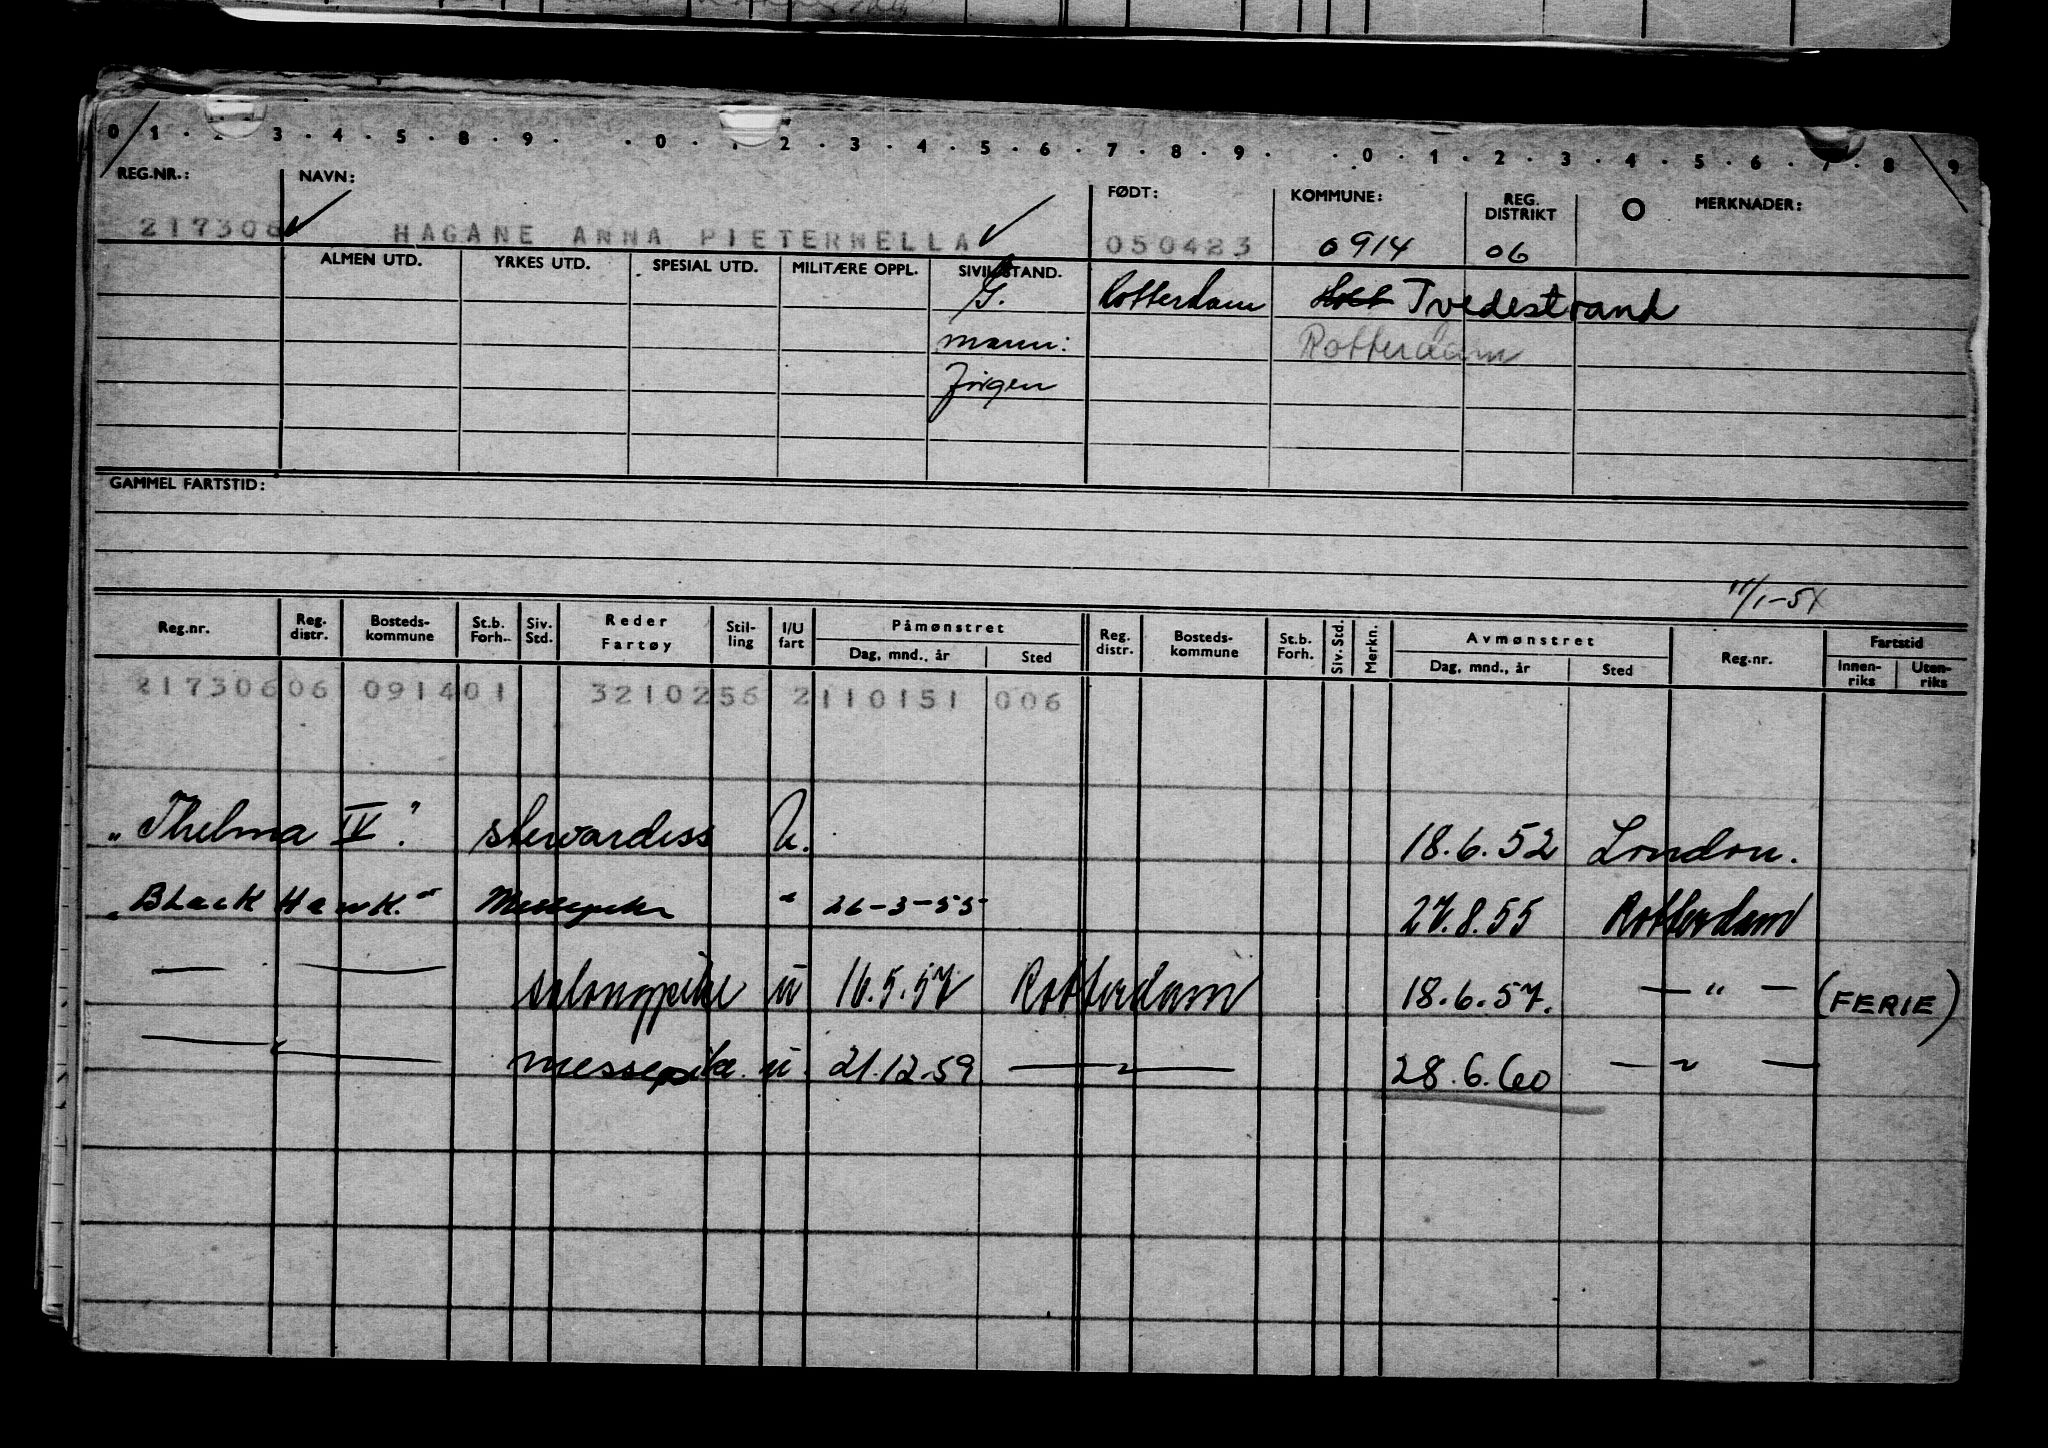 0 1 . 2 . 3 . 4 . 5 . 8 . 9 . . 0 . 1 . 2 . 3 . 4 . 5 . 6 . 7 . 8 . 9 . . 0 . 1 . 2 . 3 . 4 . 5 . 6 . 7 . 8 . 9
REG.NR.: NAVN: FØDT: KOMMUNE: REG. DISTRIKT O MERKNADER:
217306 HAGANE ANNA PIETERNELLA 050423 0914 06
ALMEN UTD. YRKES UTD. SPESIAL UTD. MILITÆRE OPPL. SIVILSTAND.
G. Rotterdam Holt Tvedestrand
mann: Rotterdam
Jörgen
GAMMEL FARTSTID:
11/1-54
Reg.nr. Reg. distr. Bosteds- kommune St.b. Forh.. Siv. Std. Reder Fartøy Stil- ling I/U fart Påmønstret Reg. distr. Bosteds- kommune St.b. Forh. Siv. Std. Merkn. Avmønstret Reg.nr. Fartstid
Dag, mnd., år Sted Dag, mnd., år Sted Innen- riks Uten- riks
217306 06 0914 01 3210256 2 110151 006
"Thelma IV". stewardess U. 18.6.52 London.
"Black Hawk." Messepike " 26-3-55 27.8.55 Rotterdam
— — salongpike u 16.5.57 Rotterdam 18.6.57. — " — (FERIE)
— " — messepike u. 21.12.59 — " — 28.6.60 — " —